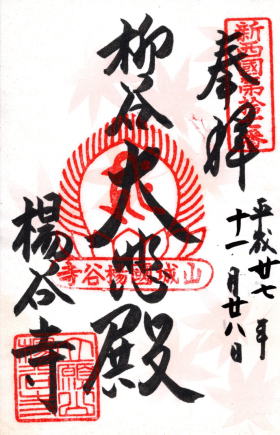 新西國第拾七番
奉拝
平成廿七年
十一月廿八日
柳谷大悲殿
山城國楊谷寺
楊谷寺